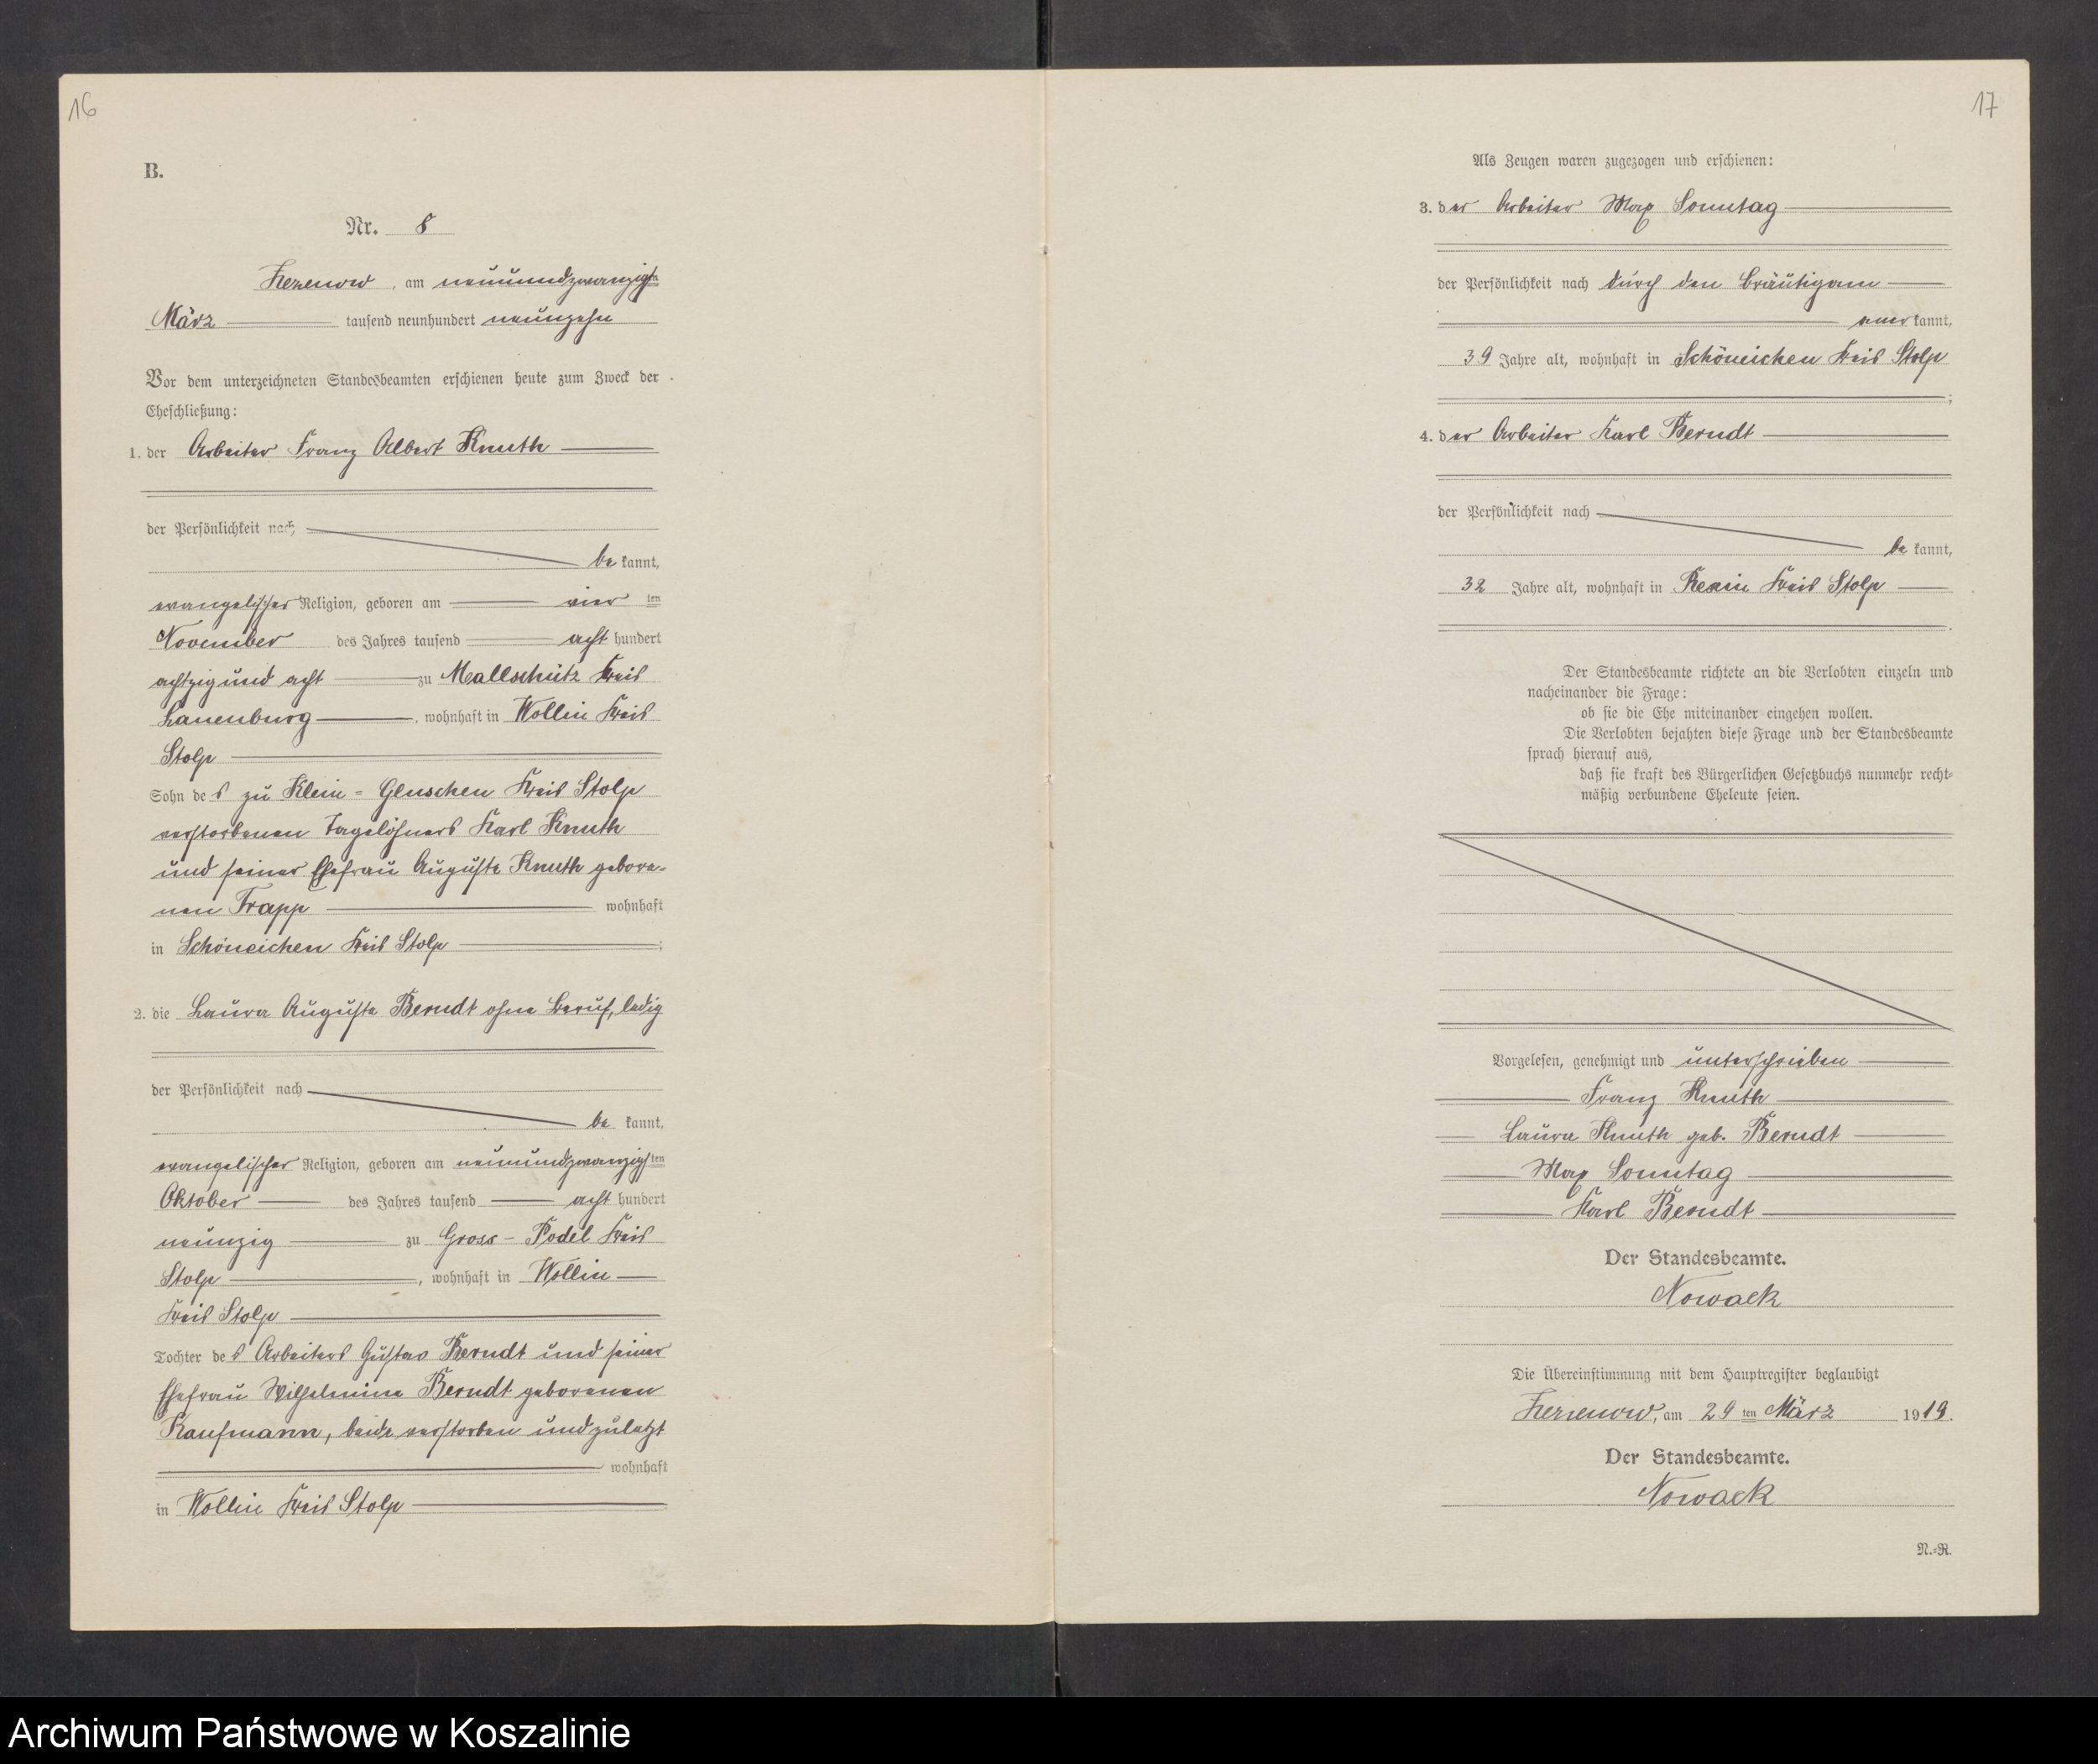 16
B.
Nr. 8
Zezenow, am neunundzwanzigsten
März tausend neunhundert neunzehn
Vor dem unterzeichneten Standesbeamten erschienen heute zum Zweck der
Eheschließung:
1. der Arbeiter Franz Albert Knuth
der Persönlichkeit nach
be kannt,
evangelischer Religion, geboren am vier ten
November des Jahres tausend acht hundert
achtzig und acht zu Mallschütz Kreis
Lauenburg, wohnhaft in Wollin Kreis
Stolp
Sohn des zu Klein-Gluschen Kreis Stolp
verstorbenen Tagelöhners Karl Knuth
und seiner Ehefrau Auguste Knuth gebore-
nen Trapp wohnhaft
in Schöneichen Kreis Stolp;
2. die Laura Auguste Berndt ohne Beruf, ledig
der Persönlichkeit nach
be kannt,
evangelischer Religion, geboren am neunundzwanzigsten
Oktober des Jahres tausend acht hundert
neunzig zu Gross-Podel Kreis
Stolp, wohnhaft in Wollin
Kreis Stolp
Tochter des Arbeiters Gustav Berndt und seiner
Ehefrau Wilhelmine Berndt geborenen
Kaufmann, beide verstorben und zuletzt
wohnhaft
in Wollin Kreis Stolp
17
Als Zeugen waren zugezogen und erschienen:
3. der Arbeiter Max Sonntag
der Persönlichkeit nach durch den Bräutigam
aner kannt,
39 Jahre alt, wohnhaft in Schöneichen Kreis Stolp
;
4. der Arbeiter Karl Berndt
der Persönlichkeit nach
be kannt,
32 Jahre alt, wohnhaft in Rexin Kreis Stolp
.
Der Standesbeamte richtete an die Verlobten einzeln und
nacheinander die Frage:
ob sie die Ehe miteinander eingehen wollen.
Die Verlobten bejahten diese Frage und der Standesbeamte
sprach hierauf aus,
daß sie kraft des Bürgerlichen Gesetzbuchs nunmehr recht-
mäßig verbundene Eheleute seien.
Vorgelesen, genehmigt und unterschrieben
Franz Knuth
Laura Knuth geb. Berndt
Max Sonntag
Karl Berndt
Der Standesbeamte.
Nowack
Die Übereinstimmung mit dem Hauptregister beglaubigt
Zezenow, am 29 ten März 1919.
Der Standesbeamte.
Nowack
N.-R.
Archiwum Państwowe w Koszalinie